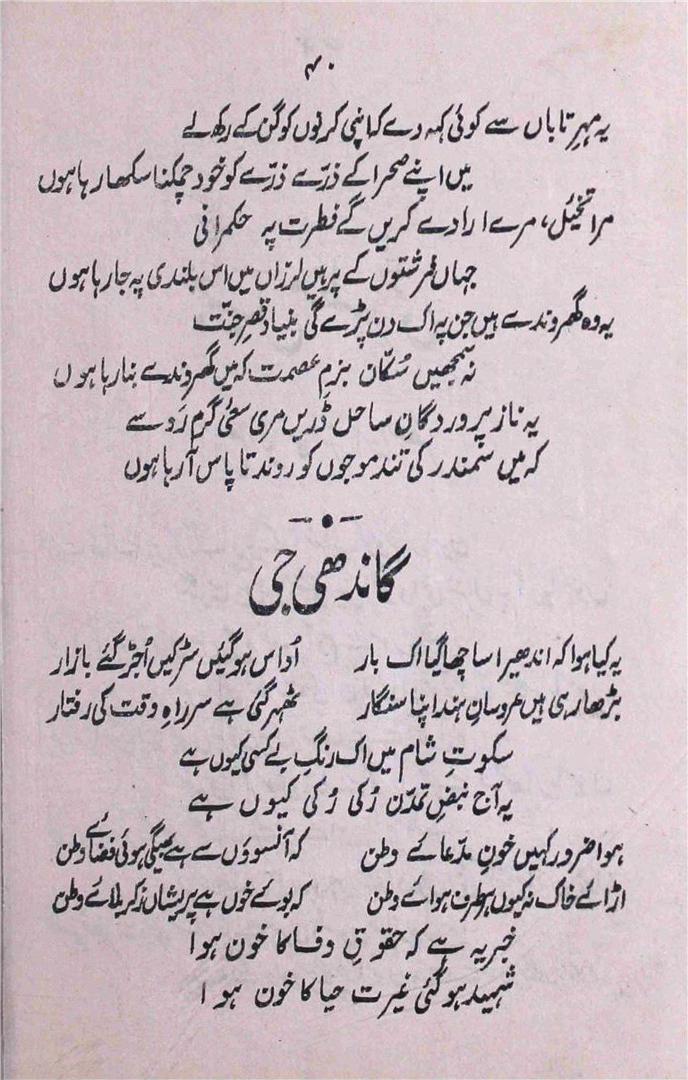 ۴۰
یہ مہرِ تاباں سے کوئی کہہ دے کہ اپنی کرنوں کو گن کے رکھ لے
میں اپنے صحرا کے ذرّے ذرّے کو خود چمکنا سکھا رہا ہوں
مرا تخیّل، مرے ارادے کریں گے فطرت پہ حکمرانی
جہاں فرشتوں کے پر ہیں لرزاں میں اس بلندی پہ جا رہا ہوں
یہ وہ گھروندے ہیں جن پہ اک دن پڑے گی بنیادِ قصرِ جنّت
نہ سمجھیں سُکّانِ بزمِ عصمت کہ میں گھروندے بنا رہا ہوں
یہ ناز پروردگانِ ساحل ڈریں مری سعئ گرم رَو سے
کہ میں سمندر کی تند موجوں کو روندتا پاس آ رہا ہوں
گاندھی جی
یہ کیا ہوا کہ اندھیرا سا چھا گیا اک بار اُداس ہوگئیں سڑکیں اُجڑ گئے بازار
بڑھا رہی ہیں عروسانِ ہند اپنا سنگار ٹھہر گئی ہے سرِ راہ وقت کی رفتار
سکوتِ شام میں اک رنگِ بےکسی کیوں ہے
یہ آج نبضِ تمدّن رُکی رُکی کیوں ہے
ہوا ضرور کہیں خونِ مدّعائے وطن کہ آنسوؤں سے ہے بھیگی ہوئی فضائے وطن
اڑائے خاک نہ کیوں ہر طرف ہوائے وطن کہ بوئے خوں ہے پریشاں زکربلائے وطن
خبر یہ ہے کہ حقوقِ وفا کا خون ہوا
شہید ہوگئی غیرت حیا کا خون ہوا